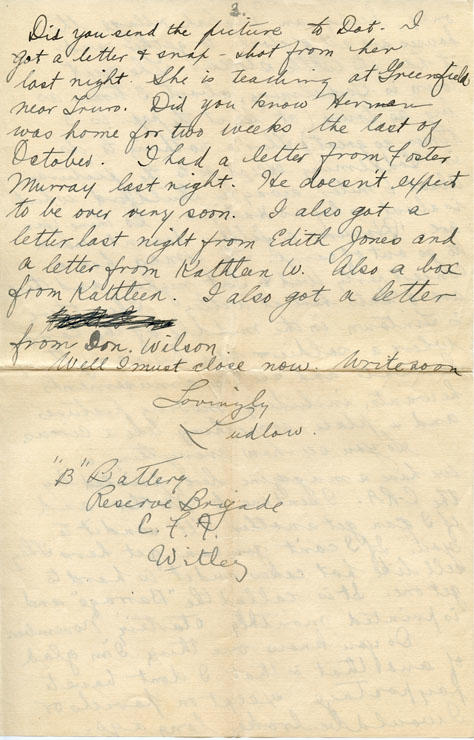 3.
Did you send the picture to Dot. I
got a letter & snap-shot from her
last night. She is teaching at Greenfield
near Truro. Did you know Herman
was home for two weeks the last of
October. I had a letter from Foster
Murray last night. He doesn't expect
to be over very soon. I also got a
letter last night from Edith Jones and
a letter from Kathleen W. Also a box
from Kathleen. I also got a letter
from Don. Wilson.
Well I must close now. Write soon
Lovingly
Ludlow.
"B" Battery
Reserve Brigade
C. F. A.
Witley